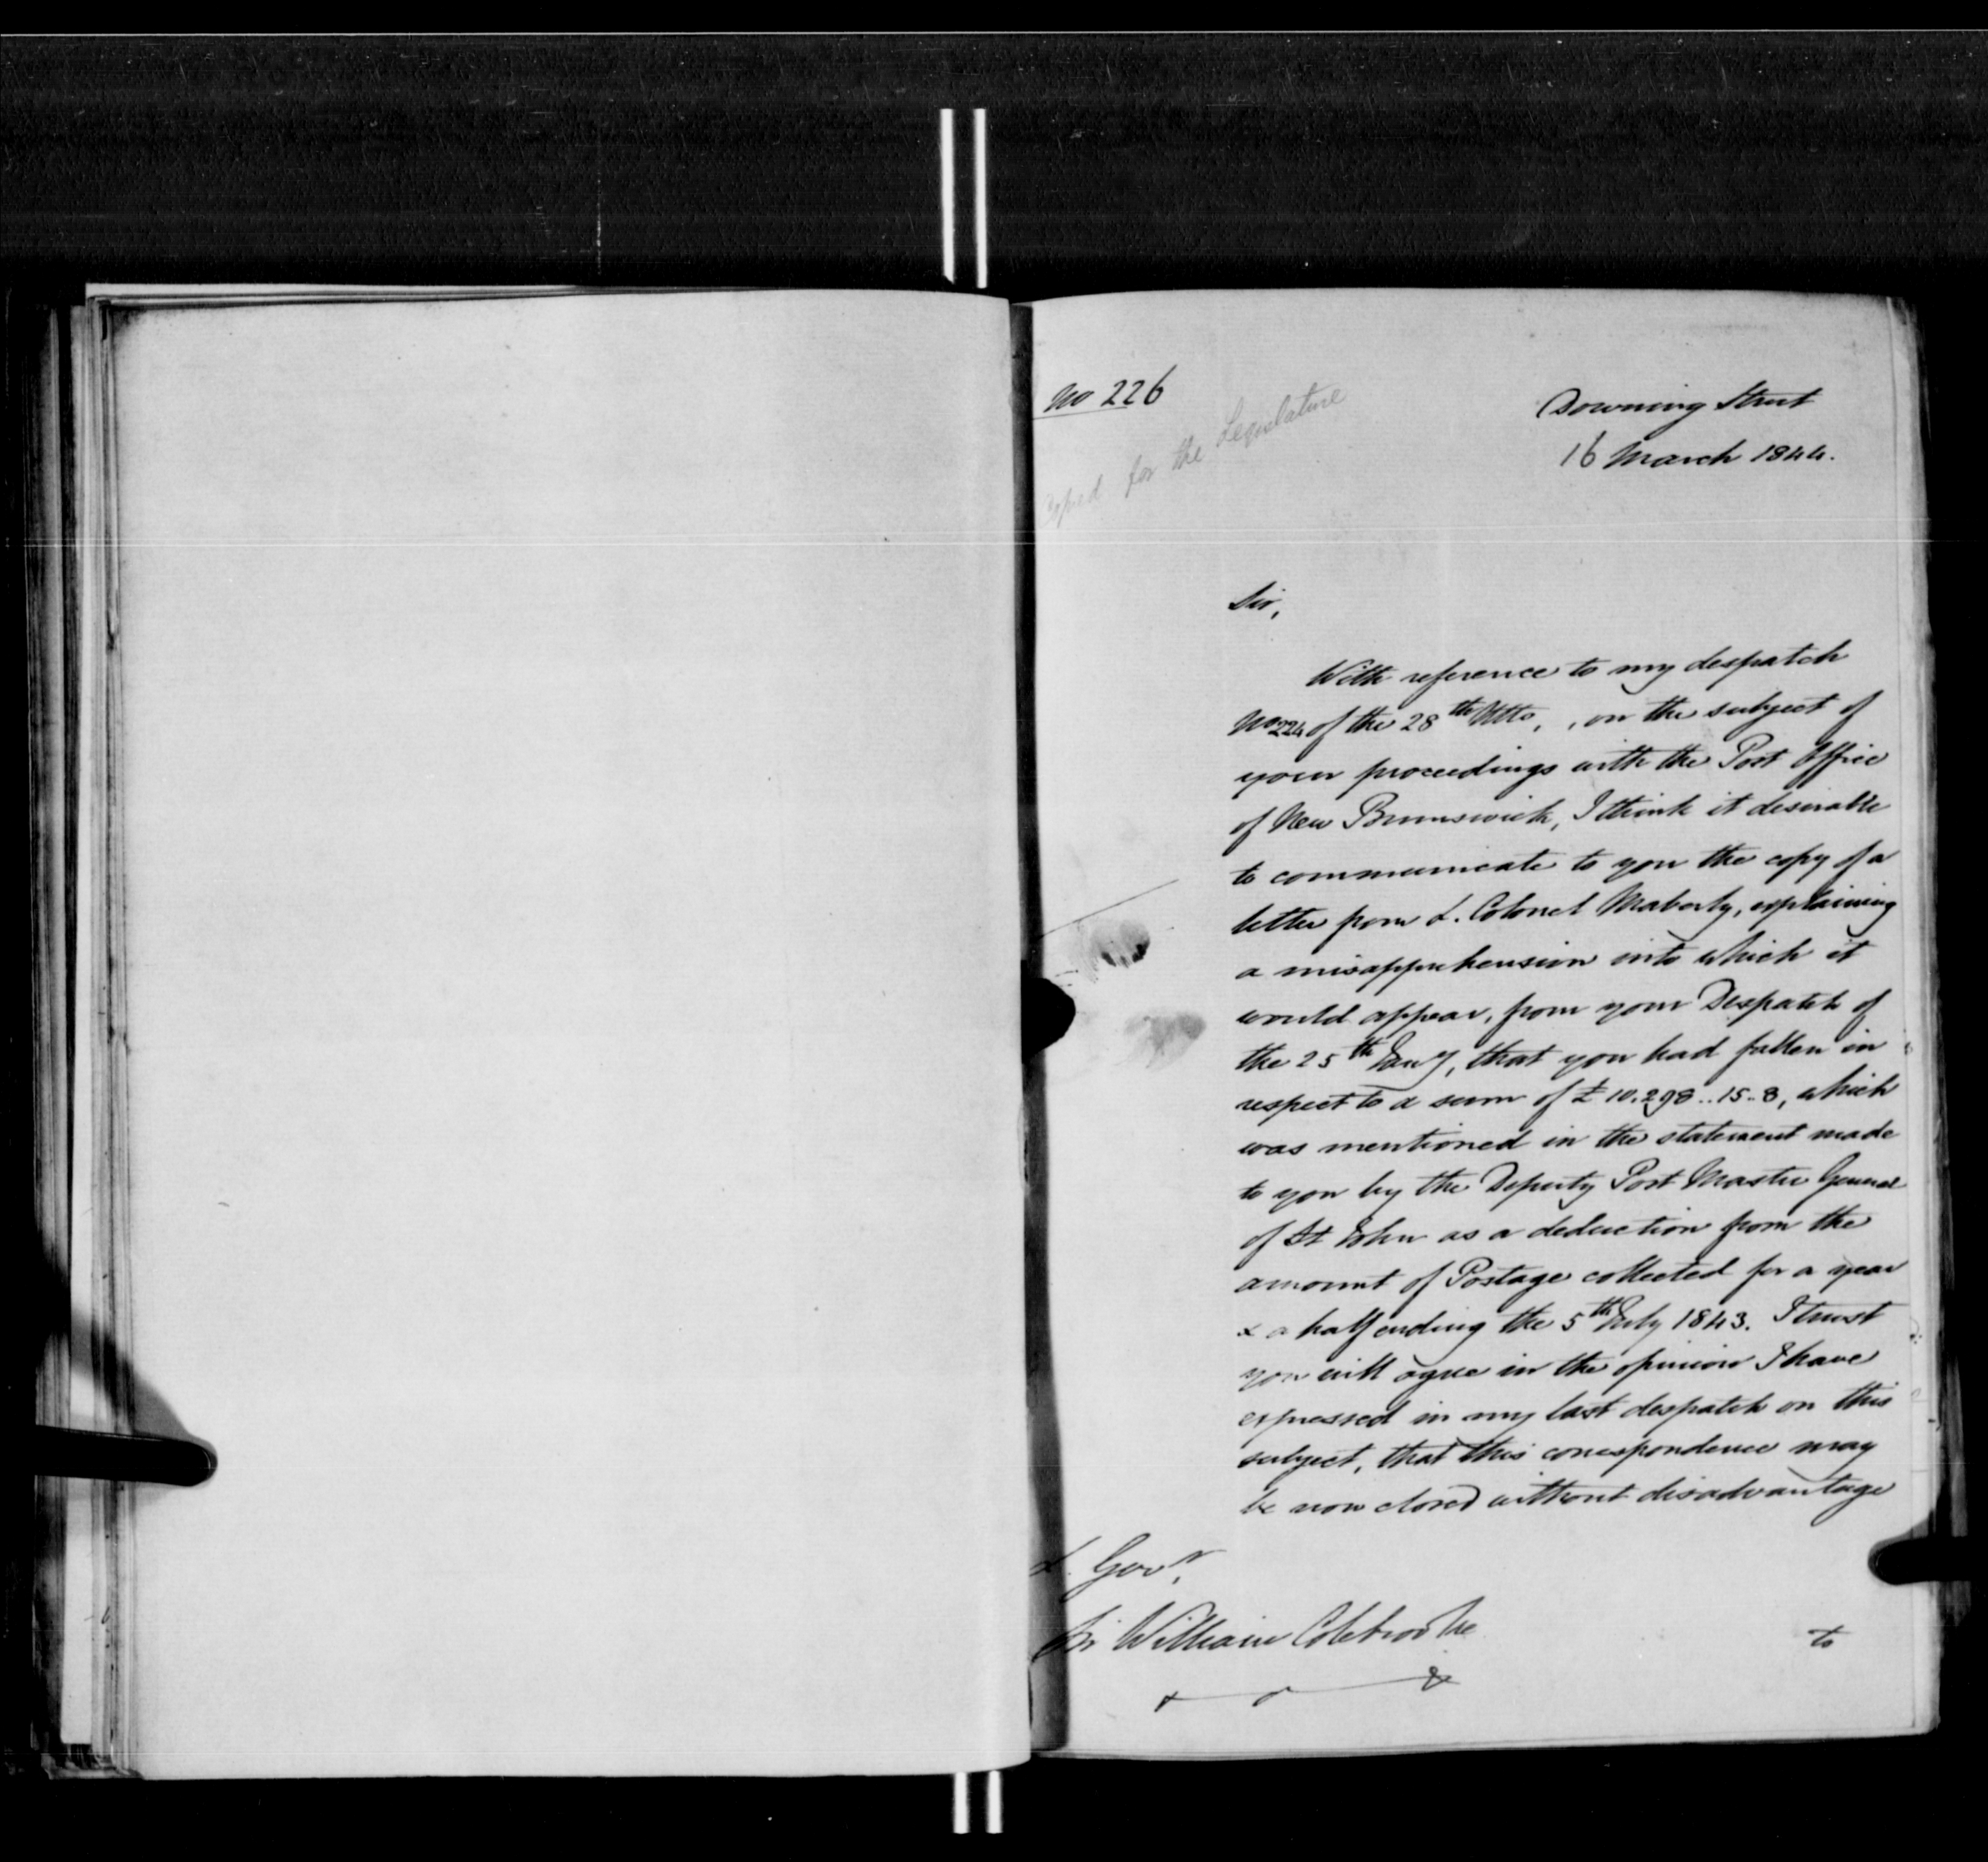 No 226
Copied for the Legislature
Downing Street
16 March 1844.
Sir,
With reference to my despatch
No 224 of the 28th Ulto, , on the subject of
your proceedings with the Post Office
of New Brunswick, I think it desirable
to communicate to you the copy of a
letter from L. Colonel Maberly, explaining
a misapprehension into which it
would appear, from your Despatch of
the 25th Jany, that you had fallen in
respect to a sum of £10.298..15..8, which
was mentioned in the statement made
to you by the Deputy Post Master General
of St John as a deduction from the
amount of Postage collected for a year
& a half ending the 5th July 1843. I trust
you will agree in the opinion I have
expressed in my last despatch on this
subject, that this correspondence may
be now closed without disadvantage
L. Govr.
Sir William Colebrooke
& &
to